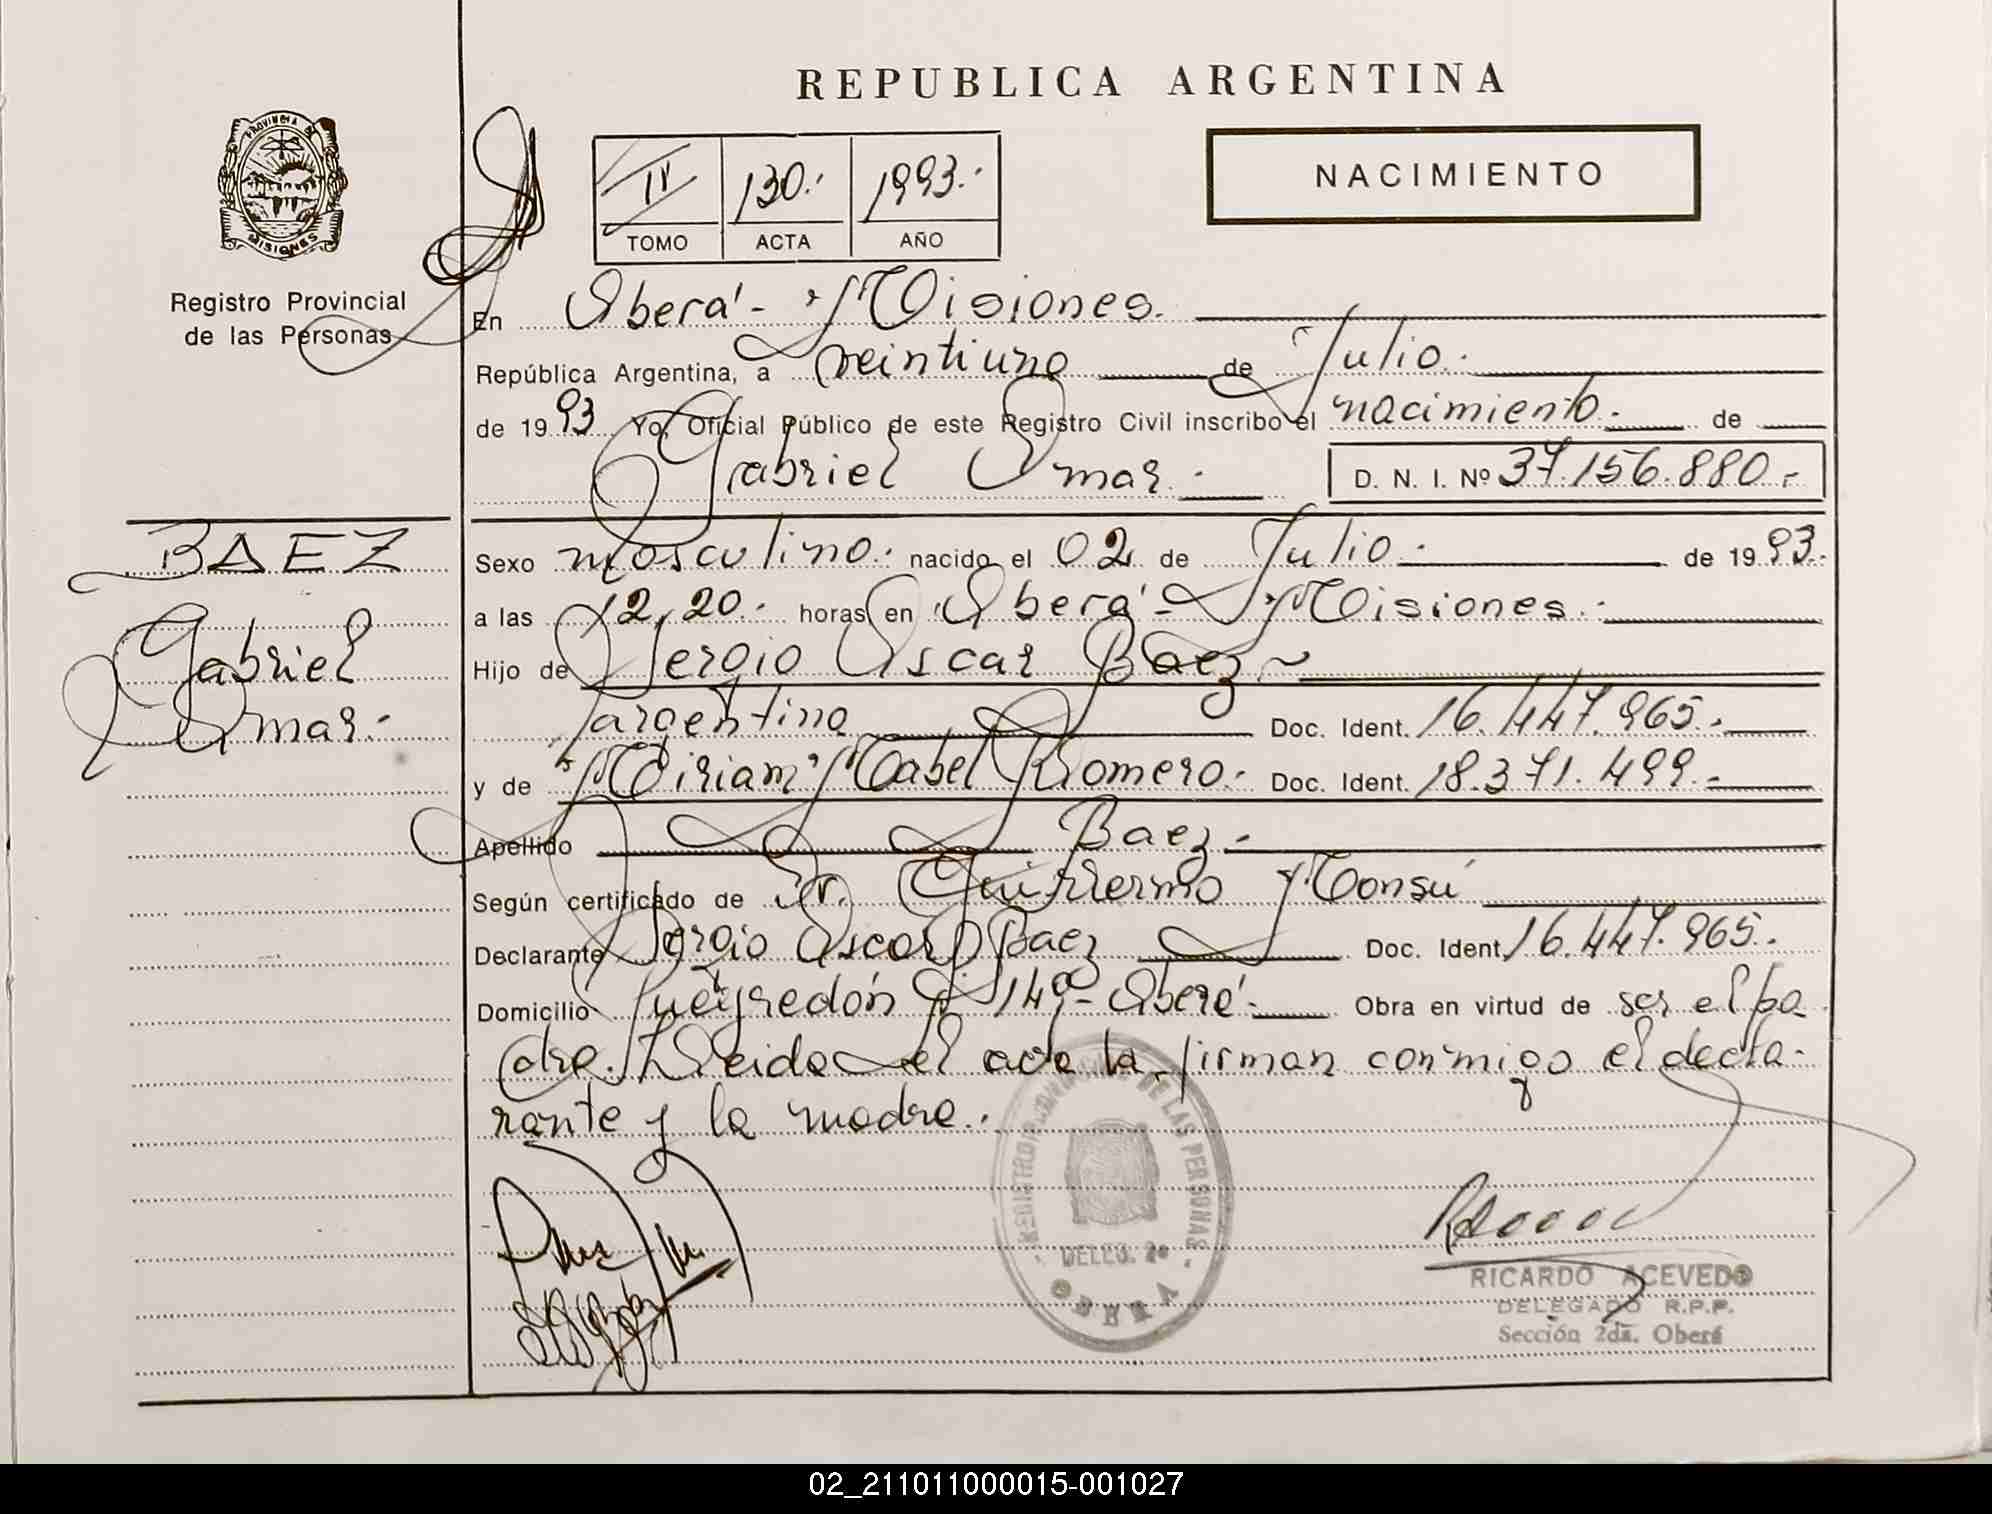 REPUBLICA ARGENTINA
PROVINCIA DE
MISIONES
Registro Provincial
de las Personas
IV 130.- 1993.-
TOMO ACTA AÑO
NACIMIENTO
En Oberá - Misiones.
República Argentina, a veintiuno de Julio.
de 1993 Yo, Oficial Público de este Registro Civil inscribo el nacimiento. de
Gabriel Omar.- D. N. I. Nº 37.156.880.-
BAEZ
Gabriel
Omar.-
Sexo masculino. nacido el 02 de Julio. de 1993.
a las 12,20. horas en Oberá - Misiones.
Hijo de Sergio Oscar Baez
argentino Doc. Ident. 16.447.965.-
y de Miriam Mabel Romero.- Doc. Ident. 18.371.499.-
Apellido Baez.-
Según certificado de Dr. Guillermo Monsú
Declarante Sergio Oscar Baez Doc. Ident. 16.447.965.
Domicilio Pueyredón Nº 149 - Oberá.- Obra en virtud de ser el pa
dre. Leida el acta la firman conmigo el decla-
rante y la madre.-
REGISTRO PROVINCIAL DE LAS PERSONAS
DELEG. 2ª
OBERA
RICARDO ACEVEDO
DELEGADO R.P.P.
Sección 2da. Oberá
02_211011000015-001027